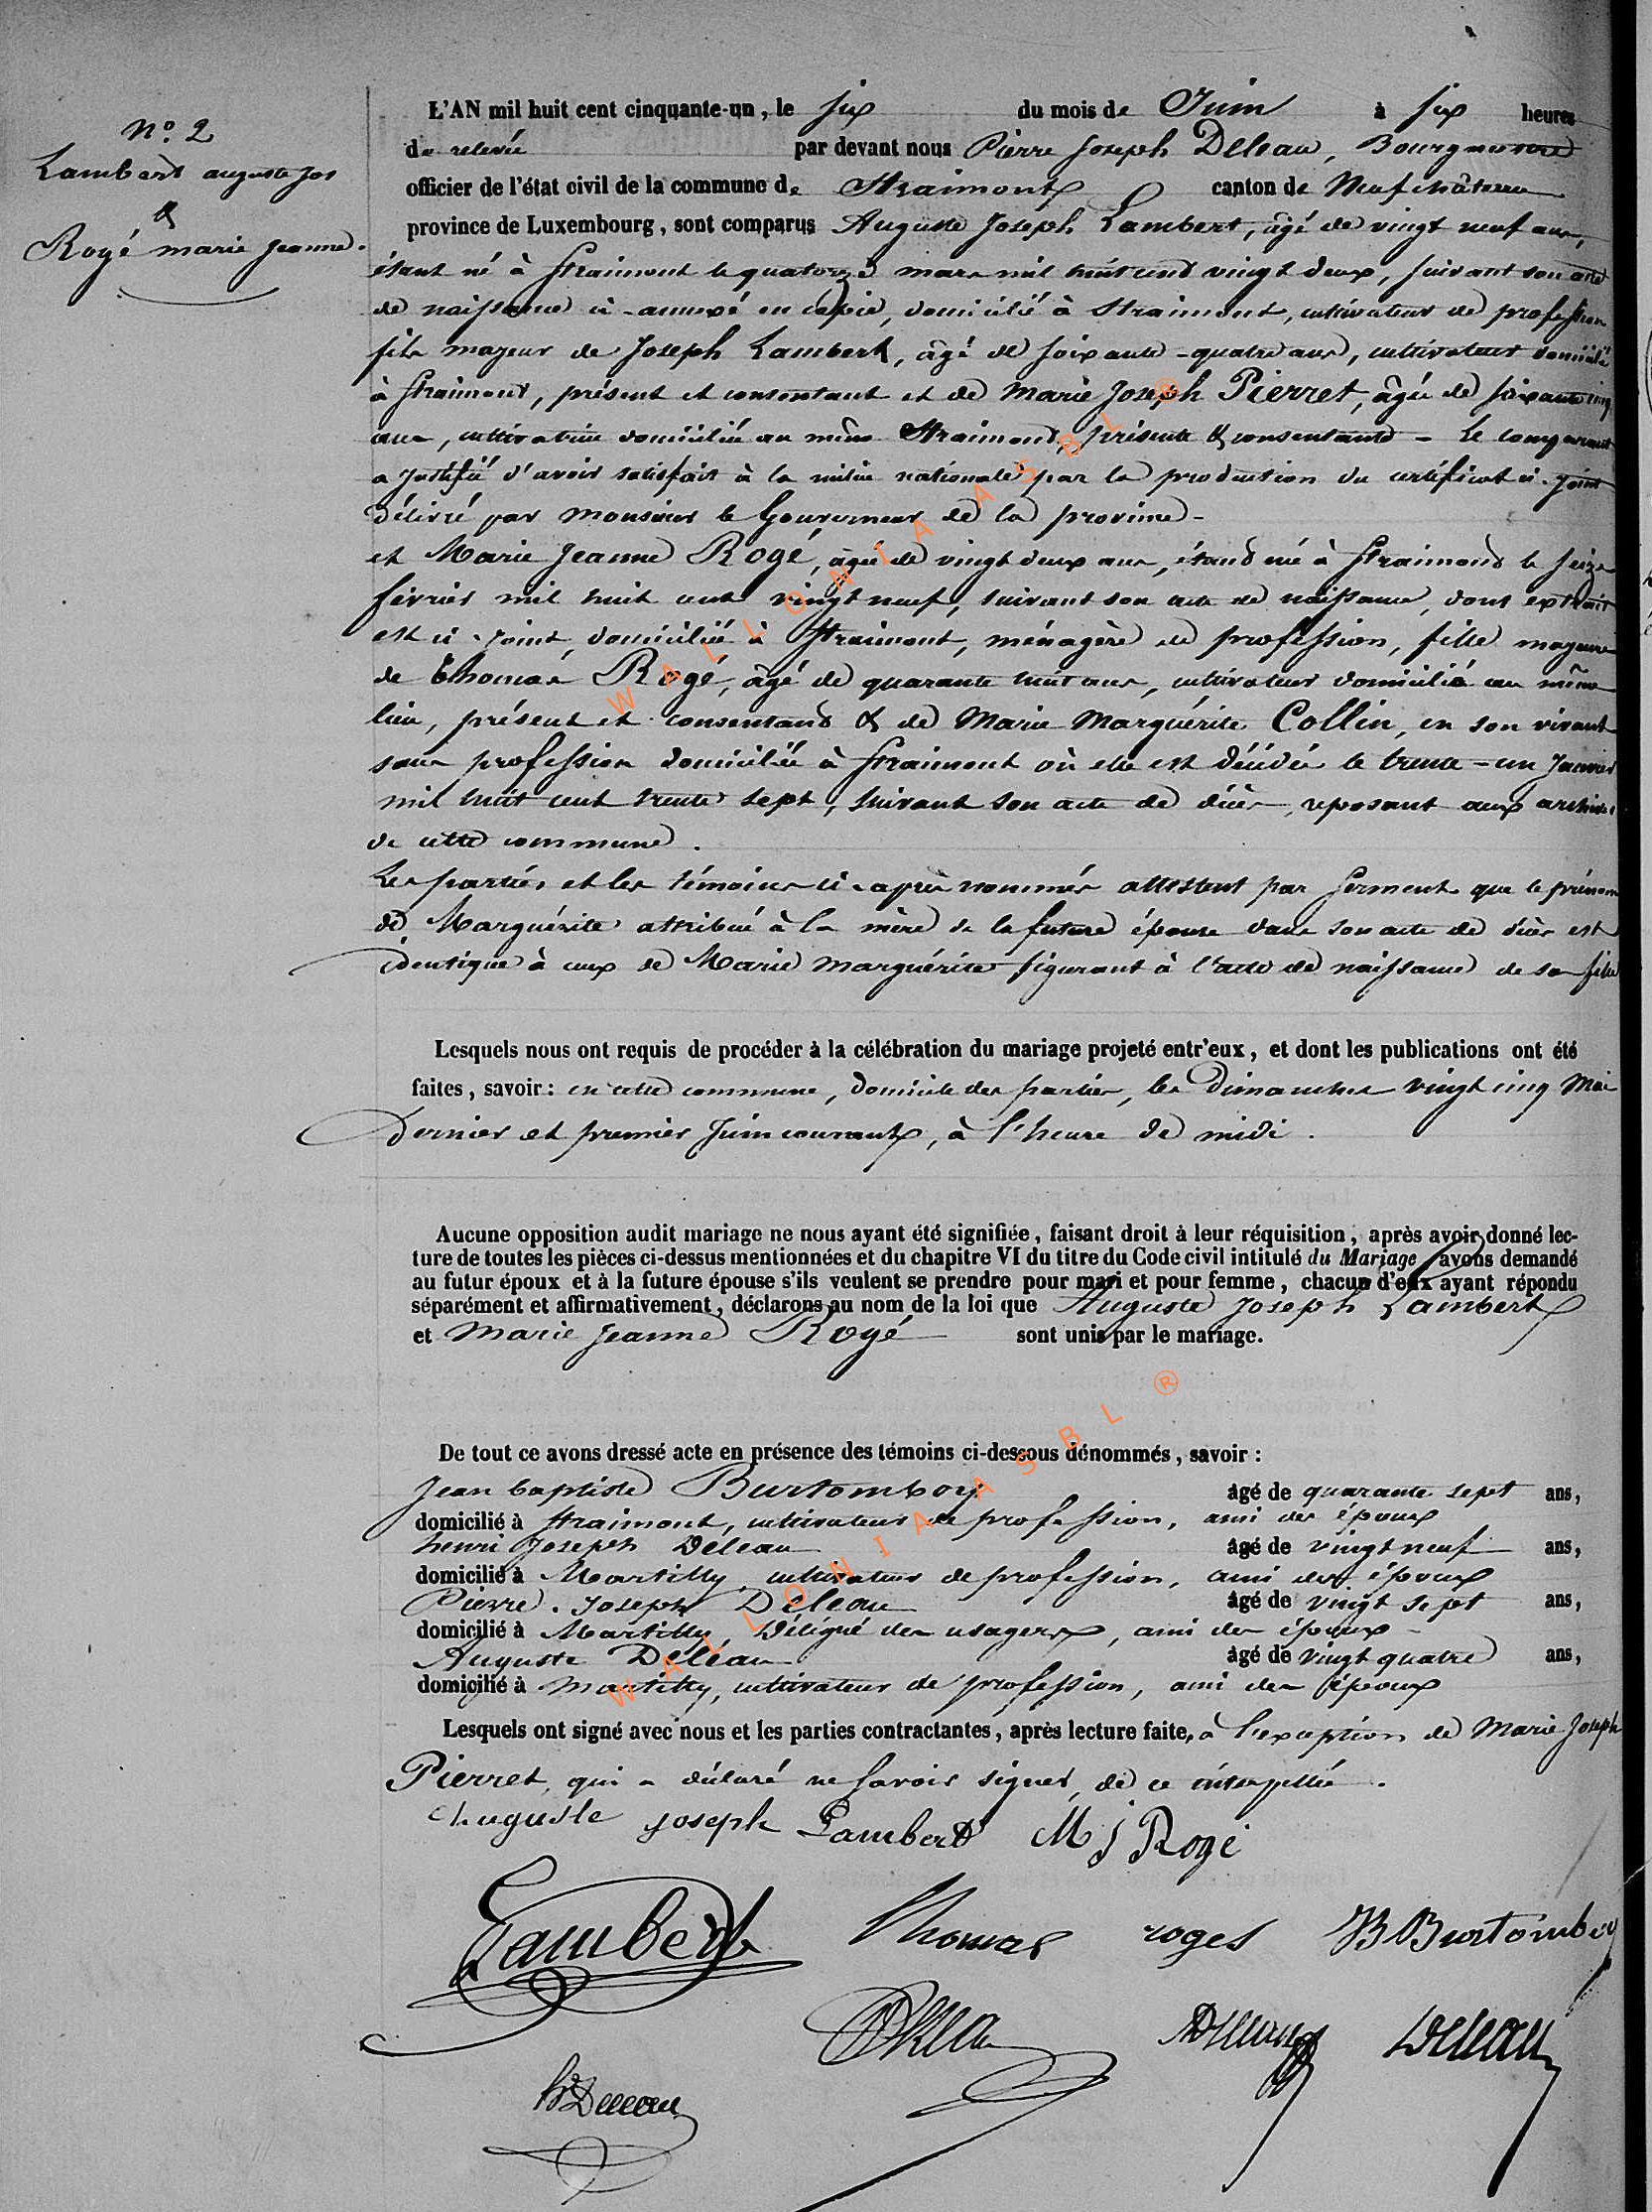 N.º 2
Lambert auguste Jos
&
Rogé marie Jeanne.
L'AN mil huit cent cinquante-un, le six du mois de Juin à six heures
de relevée par devant nous Pierre Joseph Deleau, Bourgmestre
officier de l'état civil de la commune de Straimont canton de Neufchâteau
province de Luxembourg, sont comparus Auguste Joseph Lambert, âgé de vingt neuf ans,
étant né à Straimont le quatorze mars mil huit cent vingt deux, suivant son acte
de naissance ci-annexé en copie, domicilié à Straimont, cultivateur de profession
fils majeur de Joseph Lambert, âgé de soixante-quatre ans, cultivateur domicilié
à Straimont, présent et consentant et de Marie Joseph Pierret, âgée de soixante cinq
ans, cultivatrice domiciliée au même Straimont, présente & consentante - Le comparant
a justifié d'avoir satisfait à la milice nationale par la production du certificat ci-joint
délivré par monsieur le Gouverneur de la province -
et Marie Jeanne Rogé, âgée de vingt deux ans, étant née à Straimont le seize
février mil huit cent vingt neuf, suivant son acte de naissance, dont extrait
est ci-joint, domiciliée à Straimont, ménagère de profession, fille majeure
de Thomas Rogé, âgé de quarante huit ans, cultivateur domicilié au même
lieu, présent et consentant & de Marie Marguérite Collin, en son vivant
sans profession domiciliée à Straimont où elle est décédée le trente-un Janvier
mil huit cent trente sept, suivant son acte de décès, reposant aux archives
de cette commune.
Les parties et les témoins ci-après nommés attestent par serment que le prénom
de Marguérite attribué à la mère de la future épouse dans son acte de décès est
identique à ceux de Marie Marguérite figurant à l'acte de naissance de sa fille
Lesquels nous ont requis de procéder à la célébration du mariage projeté entr'eux, et dont les publications ont été
faites, savoir: en cette commune, domicile des parties, les Dimanches vingt cinq Mai
dernier et premier Juin courant, à l'heure de midi.
Aucune opposition audit mariage ne nous ayant été signifiée, faisant droit à leur réquisition, après avoir donné lec-
ture de toutes les pièces ci-dessus mentionnées et du chapitre VI du titre du Code civil intitulé du Mariage avons demandé
au futur époux et à la future épouse s'ils veulent se prendre pour mari et pour femme, chacun d'eux ayant répondu
séparément et affirmativement, déclarons au nom de la loi que Auguste Joseph Lambert
et Marie Jeanne Rogé sont unis par le mariage.
De tout ce avons dressé acte en présence des témoins ci-dessous dénommés, savoir:
Jean baptiste Burtomboy âgé de quarante sept ans,
domicilié à Straimont, cultivateur de profession, ami des époux
henri Joseph Deleau âgé de vingt neuf ans,
domicilié à Martilly, cultivateur de profession, ami des époux
Pierre. Joseph Deleau âgé de vingt sept ans,
domicilié à Martilly, Délégué des usagers, ami des époux
Auguste Deleau âgé de vingt quatre ans,
domicilié à Martilly, cultivateur de profession, ami des époux
Lesquels ont signé avec nous et les parties contractantes, après lecture faite, à l'exception de Marie Joseph
Pierret, qui a déclaré ne savoir signer, de ce interpellée.
Auguste joseph Lambert M J Rogé
Lambert Thomas roges JB Burtomboy
Deleau
WALLONIA ASBL ®
WALLONIA ASBL ®